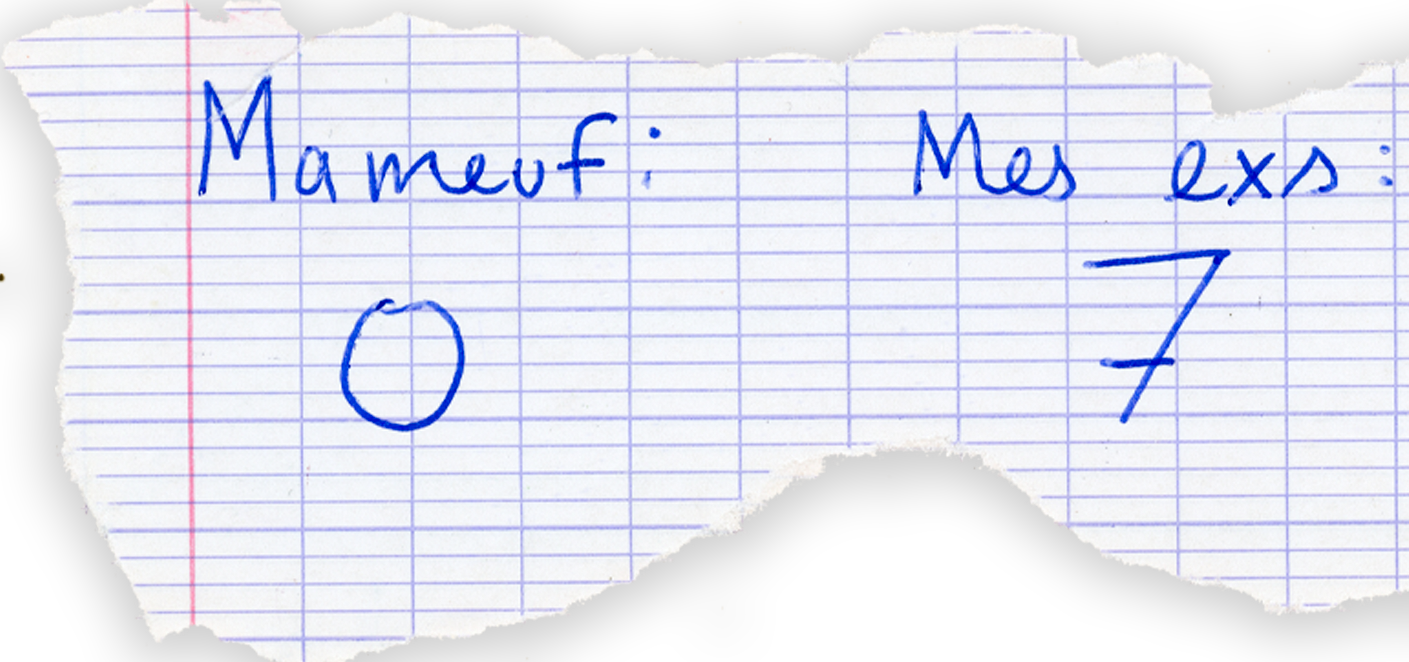 Mameuf : Mes exs :
0 7